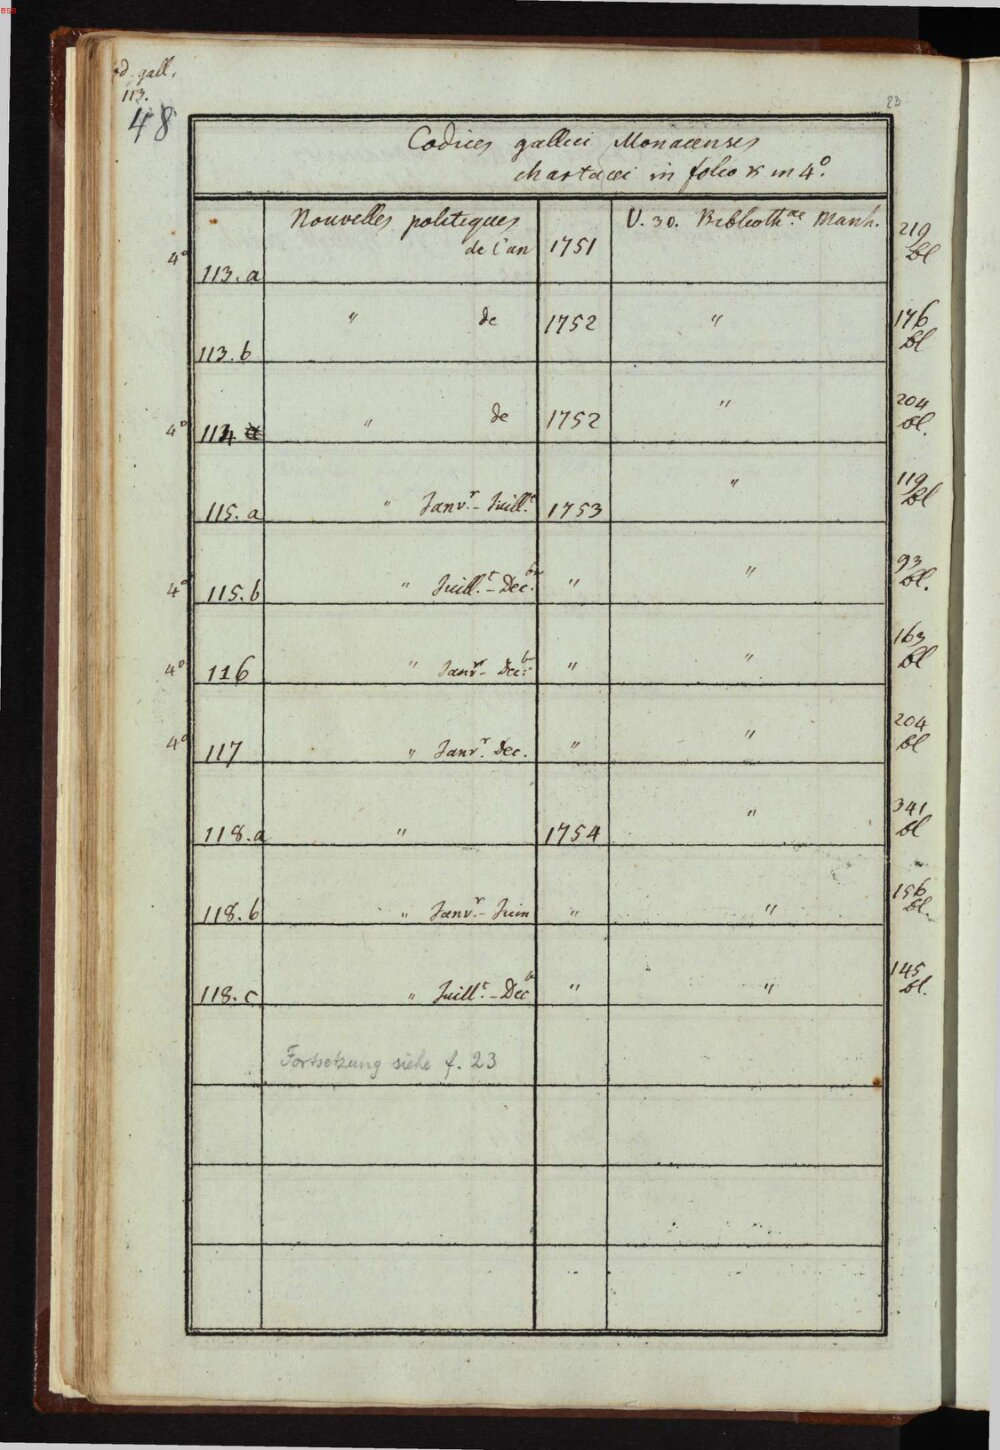 BSB
d. gall.
113.
48
23
Codices gallici Monacenses
chartacei in folio & in 4°.
4° 113.a Nouvelles politiques de l'an 1751 V. 30. Biblioth.ae Manh. 219 Bl
113.b " de 1752 " 176 Bl
4° 114 " de 1752 " 204 Bl.
115.a " Janv.r - Juill.t 1753 " 119 Bl
4° 115.b " Juill.t - Dec.br " " 93 Bl.
4° 116 " Janv.r - Dec.br " " 163 Bl
4° 117 " Janv.r Dec. " " 204 Bl
118.a " 1754 " 341 Bl
118.b " Janv.r - Juin " " 156 Bl.
118.c " Juill.t - Dec.br " " 145 Bl.
Fortsetzung siehe f. 23